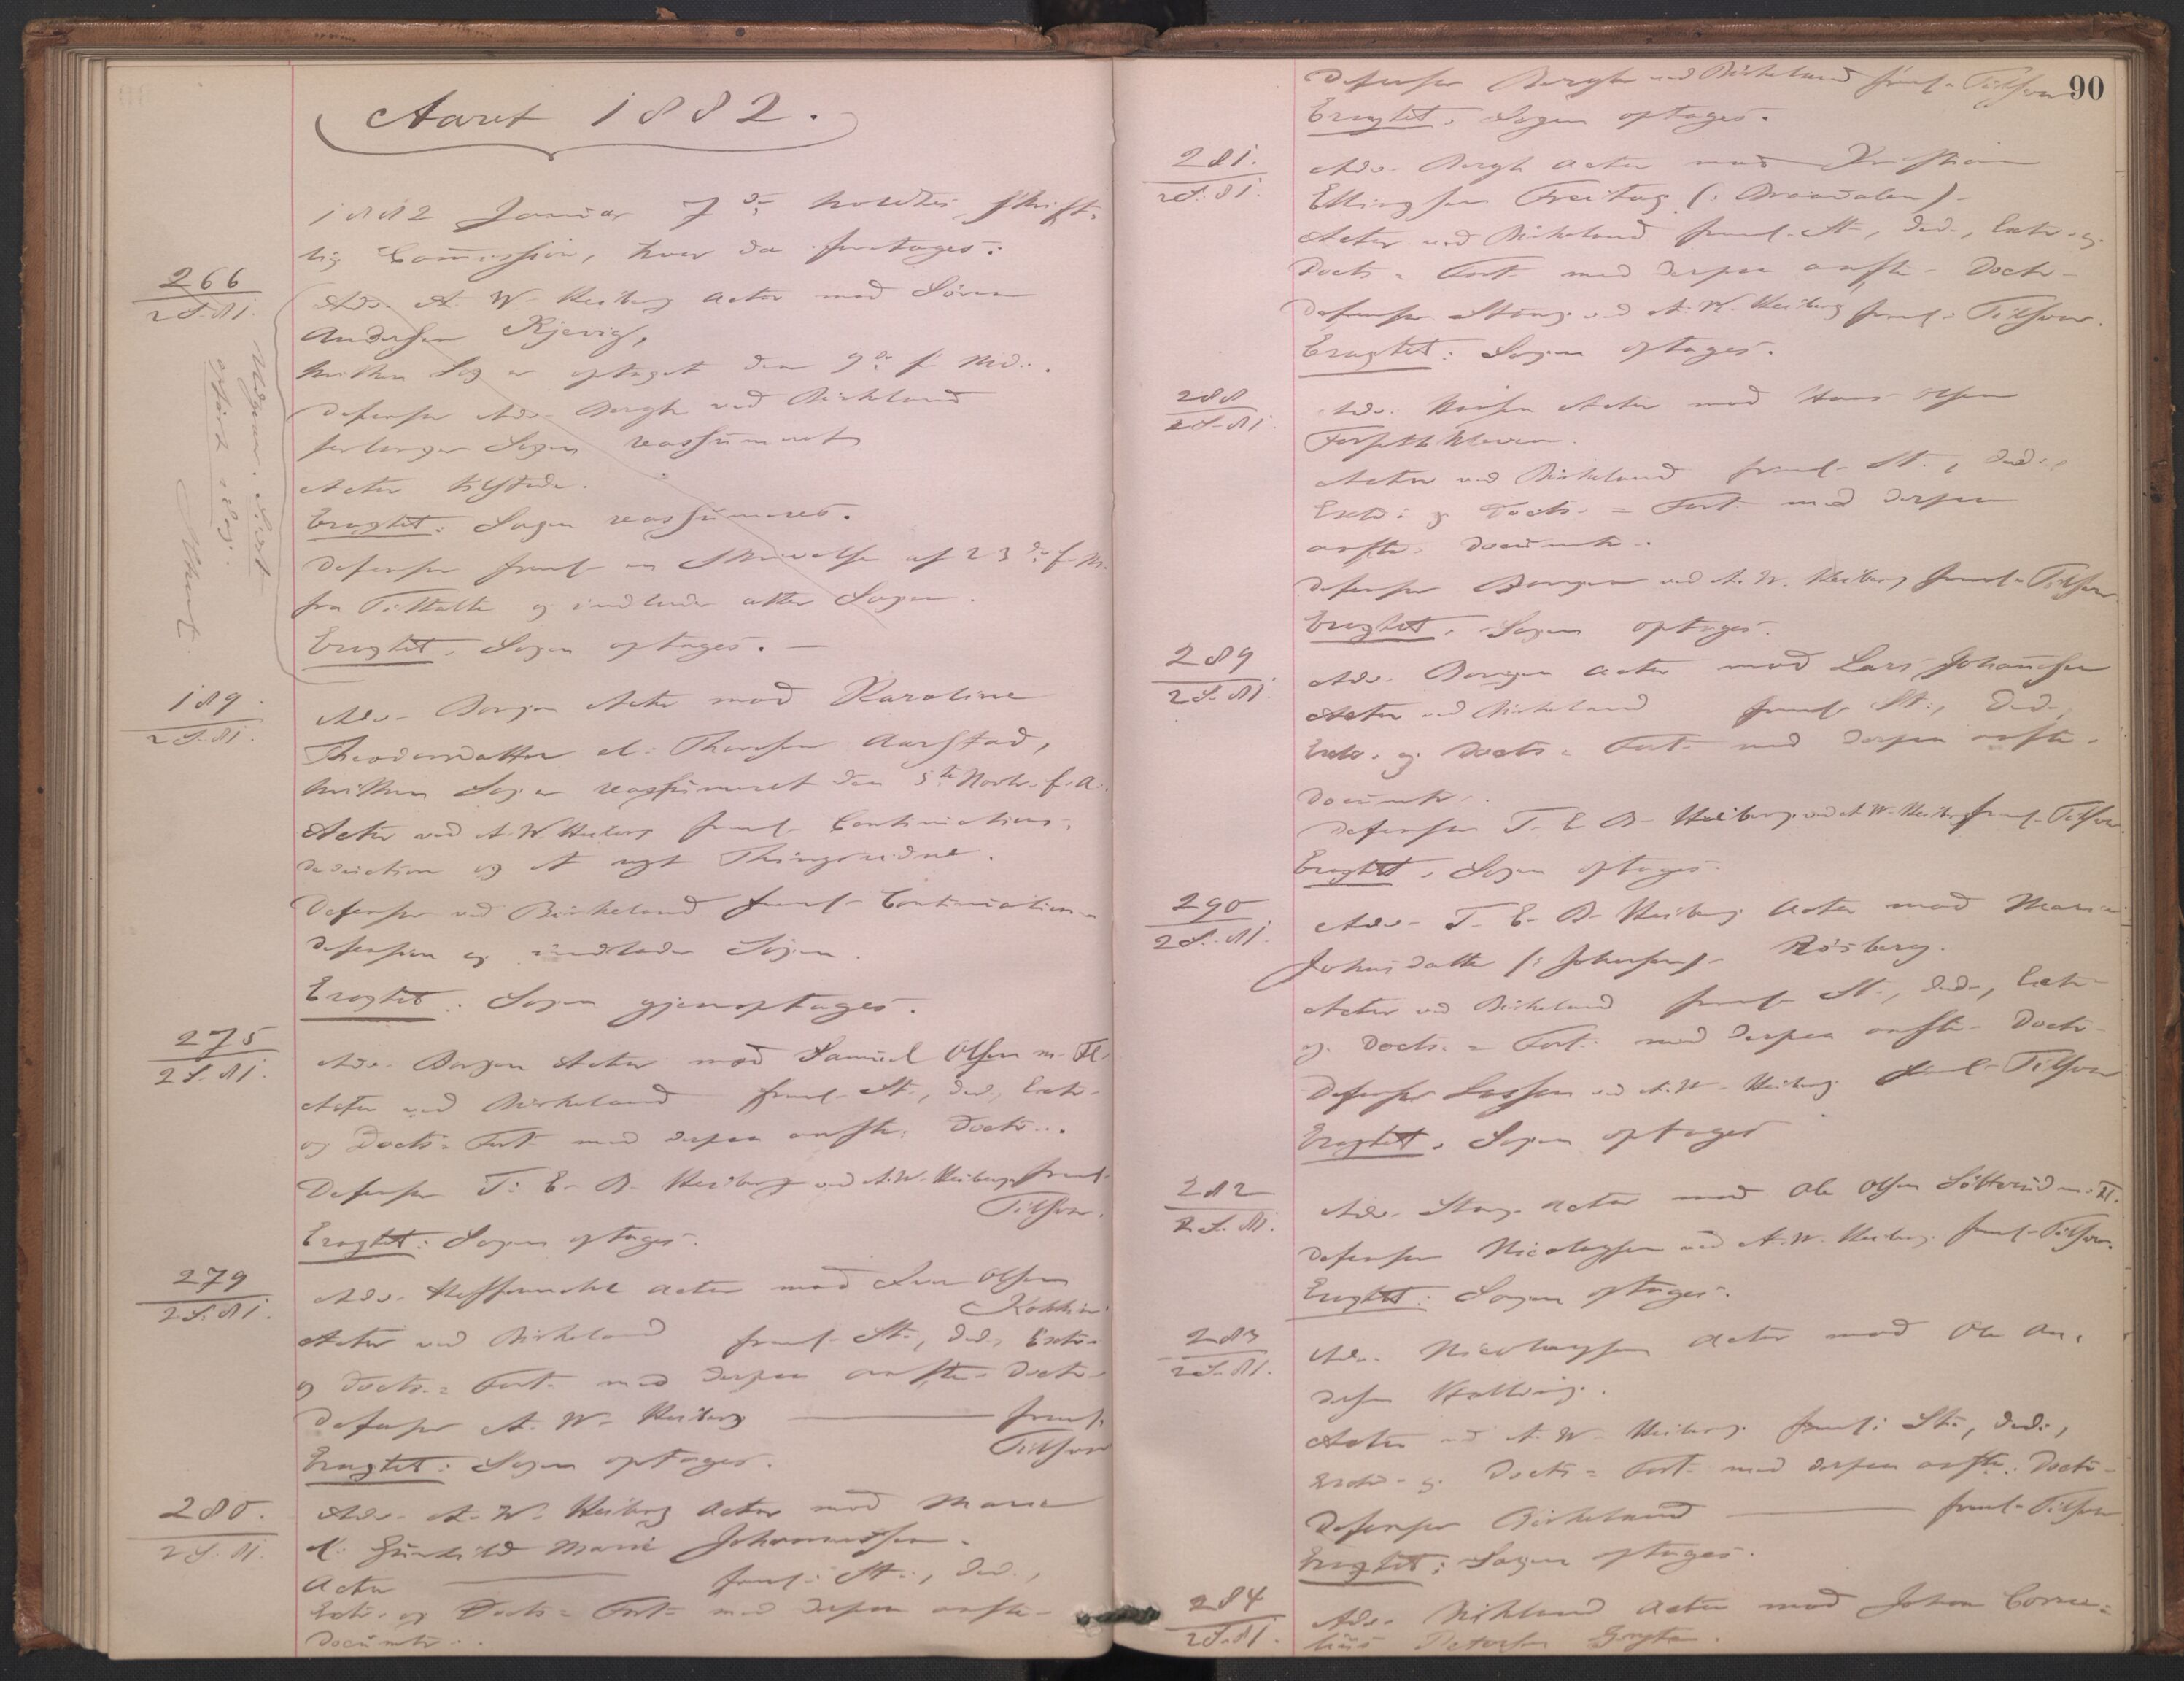 Aaret 1882.
1882 Januar 7de holdtes skrift-
lig Commission, hvor da foretages:
266
2 S. 81.
Adv. A. W. Heiberg Actor mod Sören
Andersen Kjevig,
hvilken Sag er optaget den 9de f. Md.
Defensor Adv. Bergh ved Birkeland
forlanger Sagen reassumeret
Actor tilstede.
Eragtet: Sagen reassumeres.
Defensor freml. en Skrivelse af 23de f. M.
fra Tiltalte og indlader atter Sagen.
Eragtet: Sagen optages. —
Udgaaer.
189.
2 S. 81.
Adv. Borgen Actor mod Karoline
Theodorsdatter el. Thorsen Aarstad,
hvilken Sag er reassumeret den 5te Novbr. f. A.
Actor ved A. W. Heiberg freml. Continuations-
deduction og et nyt Thingsvidne.
Defensor ved Birkeland freml. Continuations-
defension og indlader Sagen.
Eragtet: Sagen gjenoptages.
275
2 S. 81.
Adv. Borgen Actor mod Samuel Olsen m. Fl.
Actor ved Birkeland freml. St., Ded., Extr.
og Docts. = Fort. med derpaa anførte Doctr.
Defensor T. E. B. Heiberg ved A. W. Heiberg freml.
Tilsvar.
Eragtet: Sagen optages.
279
2 S. 81.
Adv. Hesselberg Actor mod Iver Olsen
Actor ved Birkeland freml. St., Ded., Extr.
og Docts. = Fort. med derpaa anførte Doctr.
Defensor A. W. Heiberg — freml.
Tilsvar
Eragtet: Sagen optages.
280.
2 S. 81.
Adv. A. W. Heiberg Actor mod Maria
el. Gunhild Marie Johannessen.
Actor — freml. St., Ded.,
Extr. og Docts. = Fort. med derpaa anførte
Documtr.
90
Defensor Bergh ved Birkeland freml. Tilsvar
Eragtet: Sagen optages.
281.
2 S. 81.
Adv. Bergh Actor mod Kristian
Ellingsen Freitag (: Braadalen)
Actor ved Birkeland freml. St., Ded., Extr. og
Docts. = Fort. med derpaa anførte Doctr.
Defensor Stang ved A. W. Heiberg freml. Tilsvar.
Eragtet: Sagen optages.
288
2 S. 81.
Adv. Actor mod Hans Olsen
Actor ved Birkeland freml. St., Ded.,
Extr. og Docts. = Fort. med derpaa
anførte Documtr.
Defensor Borgen ved A. W. Heiberg freml. Tilsvar.
Eragtet: Sagen optages.
289
2 S. 81.
Adv. Borgen Actor mod Lars Johannesen
Actor ved Birkeland freml. St., Ded.,
Extr. og Docts. = Fort. med derpaa anførte
Documtr.
Defensor T. E. B. Heiberg ved A. W. Heiberg freml. Tilsvar.
Eragtet: Sagen optages.
290
2 S. 81.
Adv. T. E. B. Heiberg Actor mod Maria
Johnsdatter (: Johnsen) Rösberg.
Actor ved Birkeland freml. St., Ded., Extr.
og Docts. = Fort. med derpaa anførte Doctr.
Defensor Lassen ved A. W. Heiberg freml. Tilsvar
Eragtet: Sagen optages
282
2 S. 81.
Adv. Stang Actor mod Ole Olsen m. Fl.
Defensor Nicolaysen ved A. W. Heiberg freml. Tilsvar.
Eragtet: Sagen optages.
283
2 S. 81.
Adv. Nicolaysen Actor mod Ole An-
dersen Halling.
Actor ved A. W. Heiberg freml. St., Ded.,
Extr. og Docts. = Fort. med derpaa anførte Doctr.
Defensor Birkeland — freml. Tilsvar
Eragtet: Sagen optages.
284
2 S. 81.
Adv. Birkeland Actor mod Johan Corne-
lius Petersen